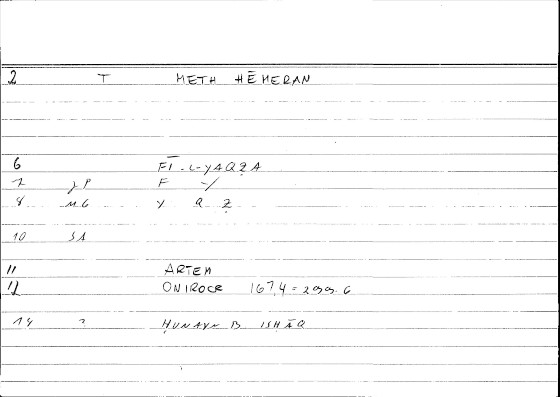 2 T METH HĒMERAN
6 FĪ-L-YAQẒA
7 γP F -Y
8 MG Y Q Ẓ
10 SA
11 ARTEM
12 ONIROCR 167,4 = 299.6
14 ? ḤUNAYN B ISḤĀQ